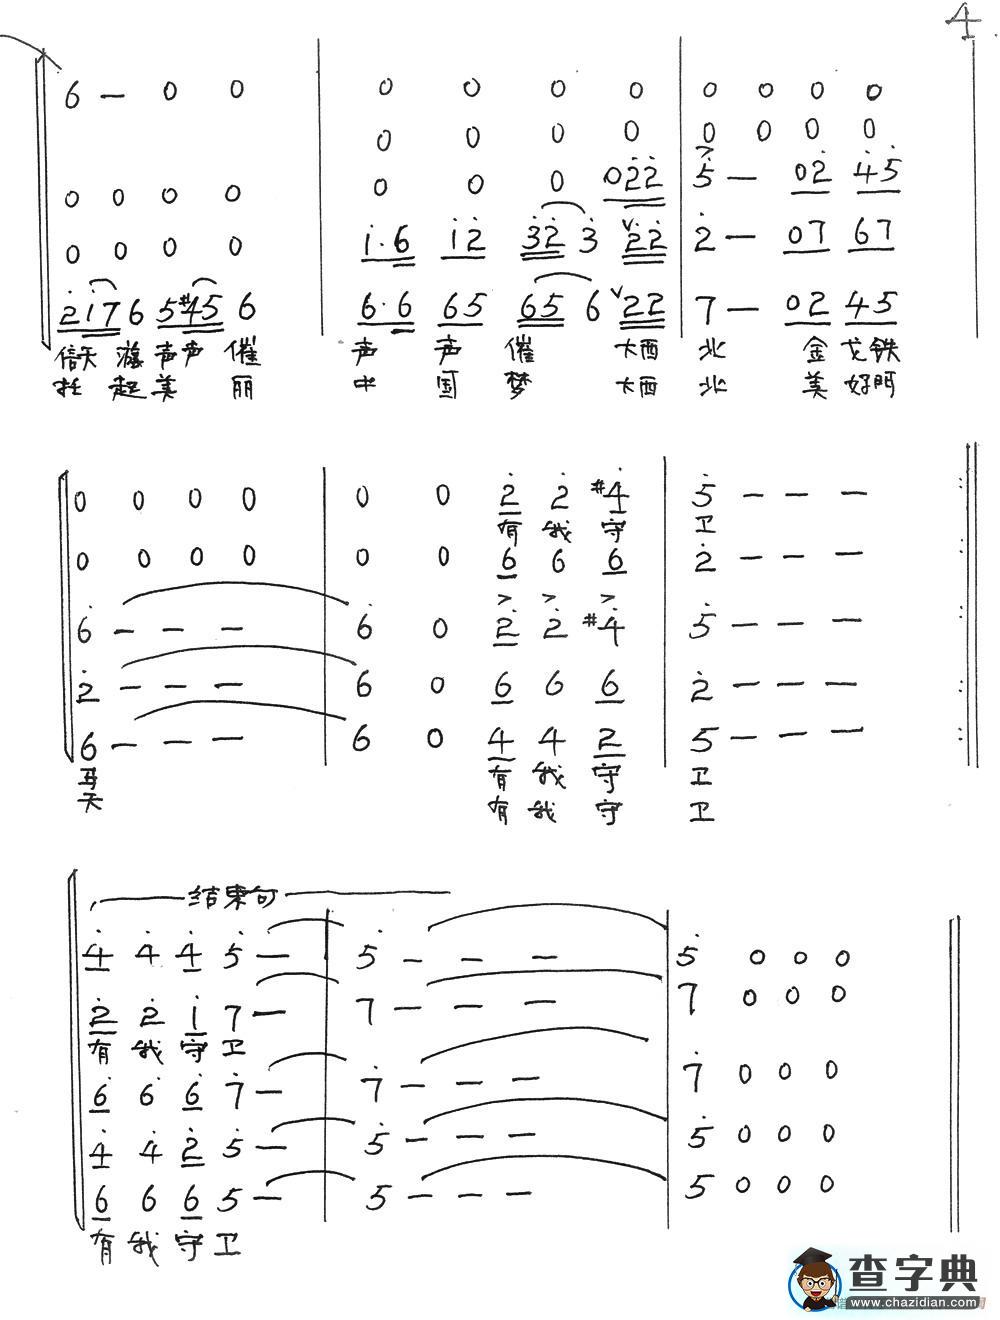 4.
6 — 0 0 | 0 0 0 0 | 0 0 0 0
0 0 0 0 | 0 0 0 0
0 0 0 0 | 0 0 0 0 2̇ 2̇ | 5̇ — 0 2̇ 4̇ 5̇
0 0 0 0 | 1̇ · 6 1̇ 2̇ 3̇ 2̇ 3̇ 2̇ 2̇ | 2̇ — 0 7 6 7
2̇ 1̇ 7 6 5 #4 5 6 | 6 · 6 6 5 6 5 6 2 2 | 7 — 0 2 4 5
信天 游 声声 催 声 声 催 大西 北 金 戈铁
起 美 丽 中 国 梦 大西 北 美 好啊
0 0 0 0 | 0 0 2̇ 2̇ #4̇ | 5̇ — — —
有 我 守 卫
0 0 0 0 | 0 0 6 6 6 | 2̇ — — —
6̇ — — — | 6̇ 0 2̇ 2̇ #4̇ | 5̇ — — —
2̇ — — — | 6 0 6 6 6 | 2̇ — — —
6 — — — | 6 0 4 4 2 | 5 — — —
马 有 我 守 卫
天 有 我 守 卫
结束句
4̇ 4̇ 4̇ 5̇ — | 5̇ — — — | 5̇ 0 0 0
2̇ 2̇ 1̇ 7 — | 7 — — — | 7 0 0 0
有 我 守 卫
6̇ 6̇ 6̇ 7̇ — | 7̇ — — — | 7̇ 0 0 0
4̇ 4̇ 2̇ 5̇ — | 5̇ — — — | 5̇ 0 0 0
6 6 6 5 — | 5 — — — | 5 0 0 0
有 我 守 卫
查字典
www.chazidian.com